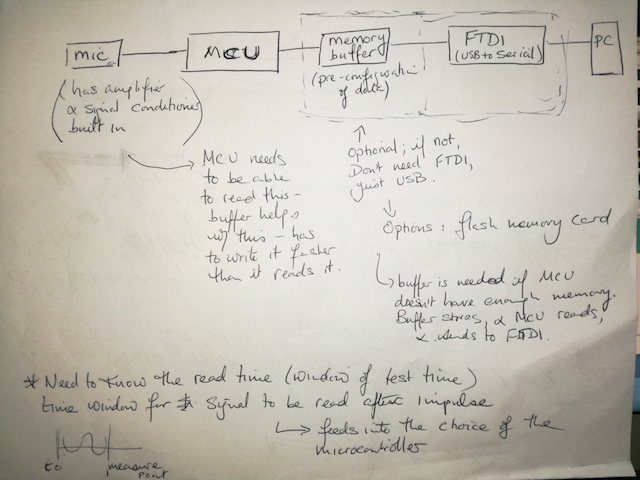 mic
MCU
memory
buffer
FTDI
(USB to Serial)
PC
(has amplifier
& signal conditioner
built in)
(pre-configuration
of data)
MCU needs
to be able
to read this -
buffer helps
w/ this - has
to write it faster
than it reads it.
Optional; if not,
Don't need FTDI,
just USB.
Options: flash memory card
buffer is needed if MCU
doesn't have enough memory.
Buffer stores, & MCU reads,
& sends to FTDI.
* Need to know the read time (window of test time)
time window for signal to be read after impulse
feeds into the choice of the
microcontroller
t0
measure
point